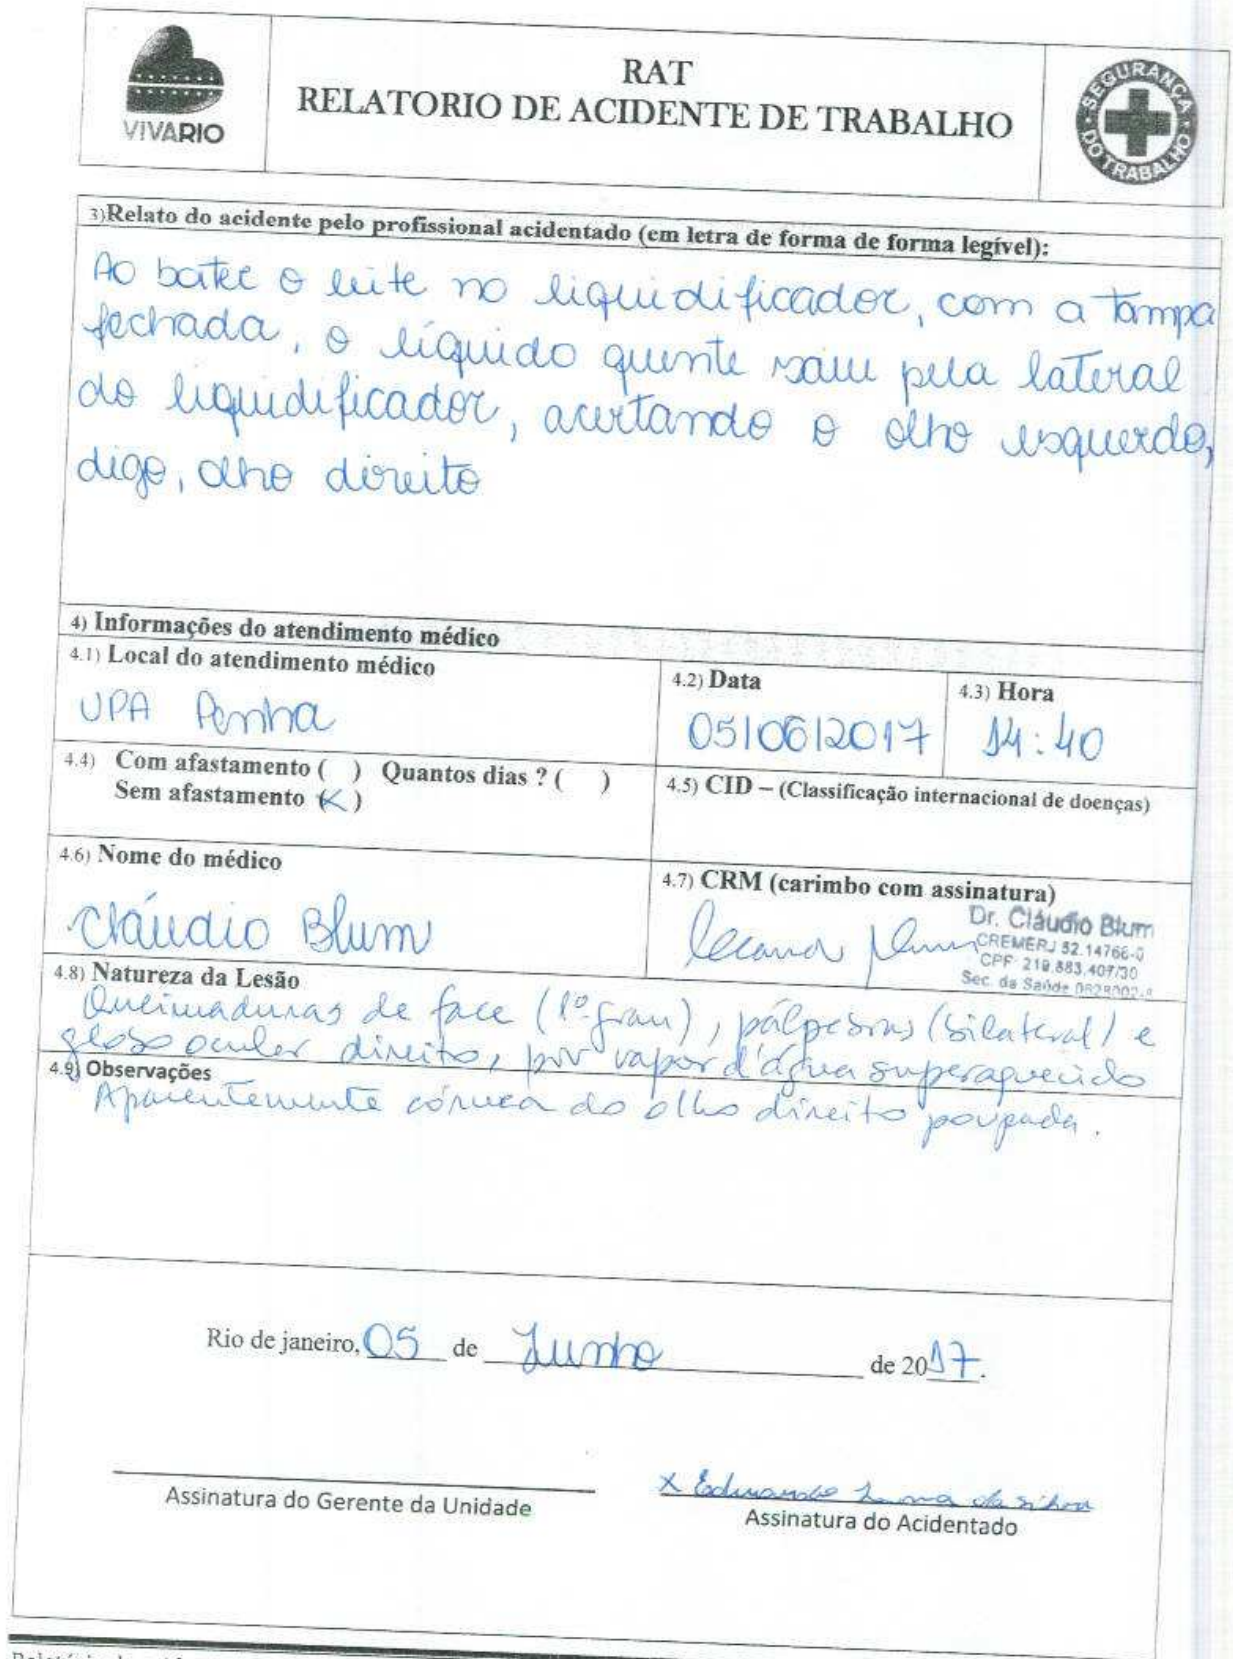 VIVARIO
RAT
RELATORIO DE ACIDENTE DE TRABALHO
SEGURANÇA DO TRABALHO
3)Relato do acidente pelo profissional acidentado (em letra de forma de forma legível):
Ao bater o leite no liquidificador, com a tampa
fechada, o líquido quente saiu pela lateral
do liquidificador, acertando o olho esquerdo,
digo, olho direito
4) Informações do atendimento médico
4.1) Local do atendimento médico
UPA Penha
4.2) Data
05/06/2017
4.3) Hora
14:40
4.4) Com afastamento ( ) Quantos dias ? ( )
Sem afastamento (X)
4.5) CID – (Classificação internacional de doenças)
4.6) Nome do médico
Cláudio Blum
4.7) CRM (carimbo com assinatura)
Dr. Cláudio Blum
CREMERJ 52.14766-0
CPF 219.883.407/30
Sec. de Saúde
4.8) Natureza da Lesão
Queimaduras de face (1º grau), pálpebras (bilateral) e
globo ocular direito, por vapor d'água superaquecido
4.9) Observações
Aparentemente córnea do olho direito poupada.
Rio de janeiro, 05 de Junho de 2017.
Assinatura do Gerente da Unidade
X Eduardo da Silva
Assinatura do Acidentado